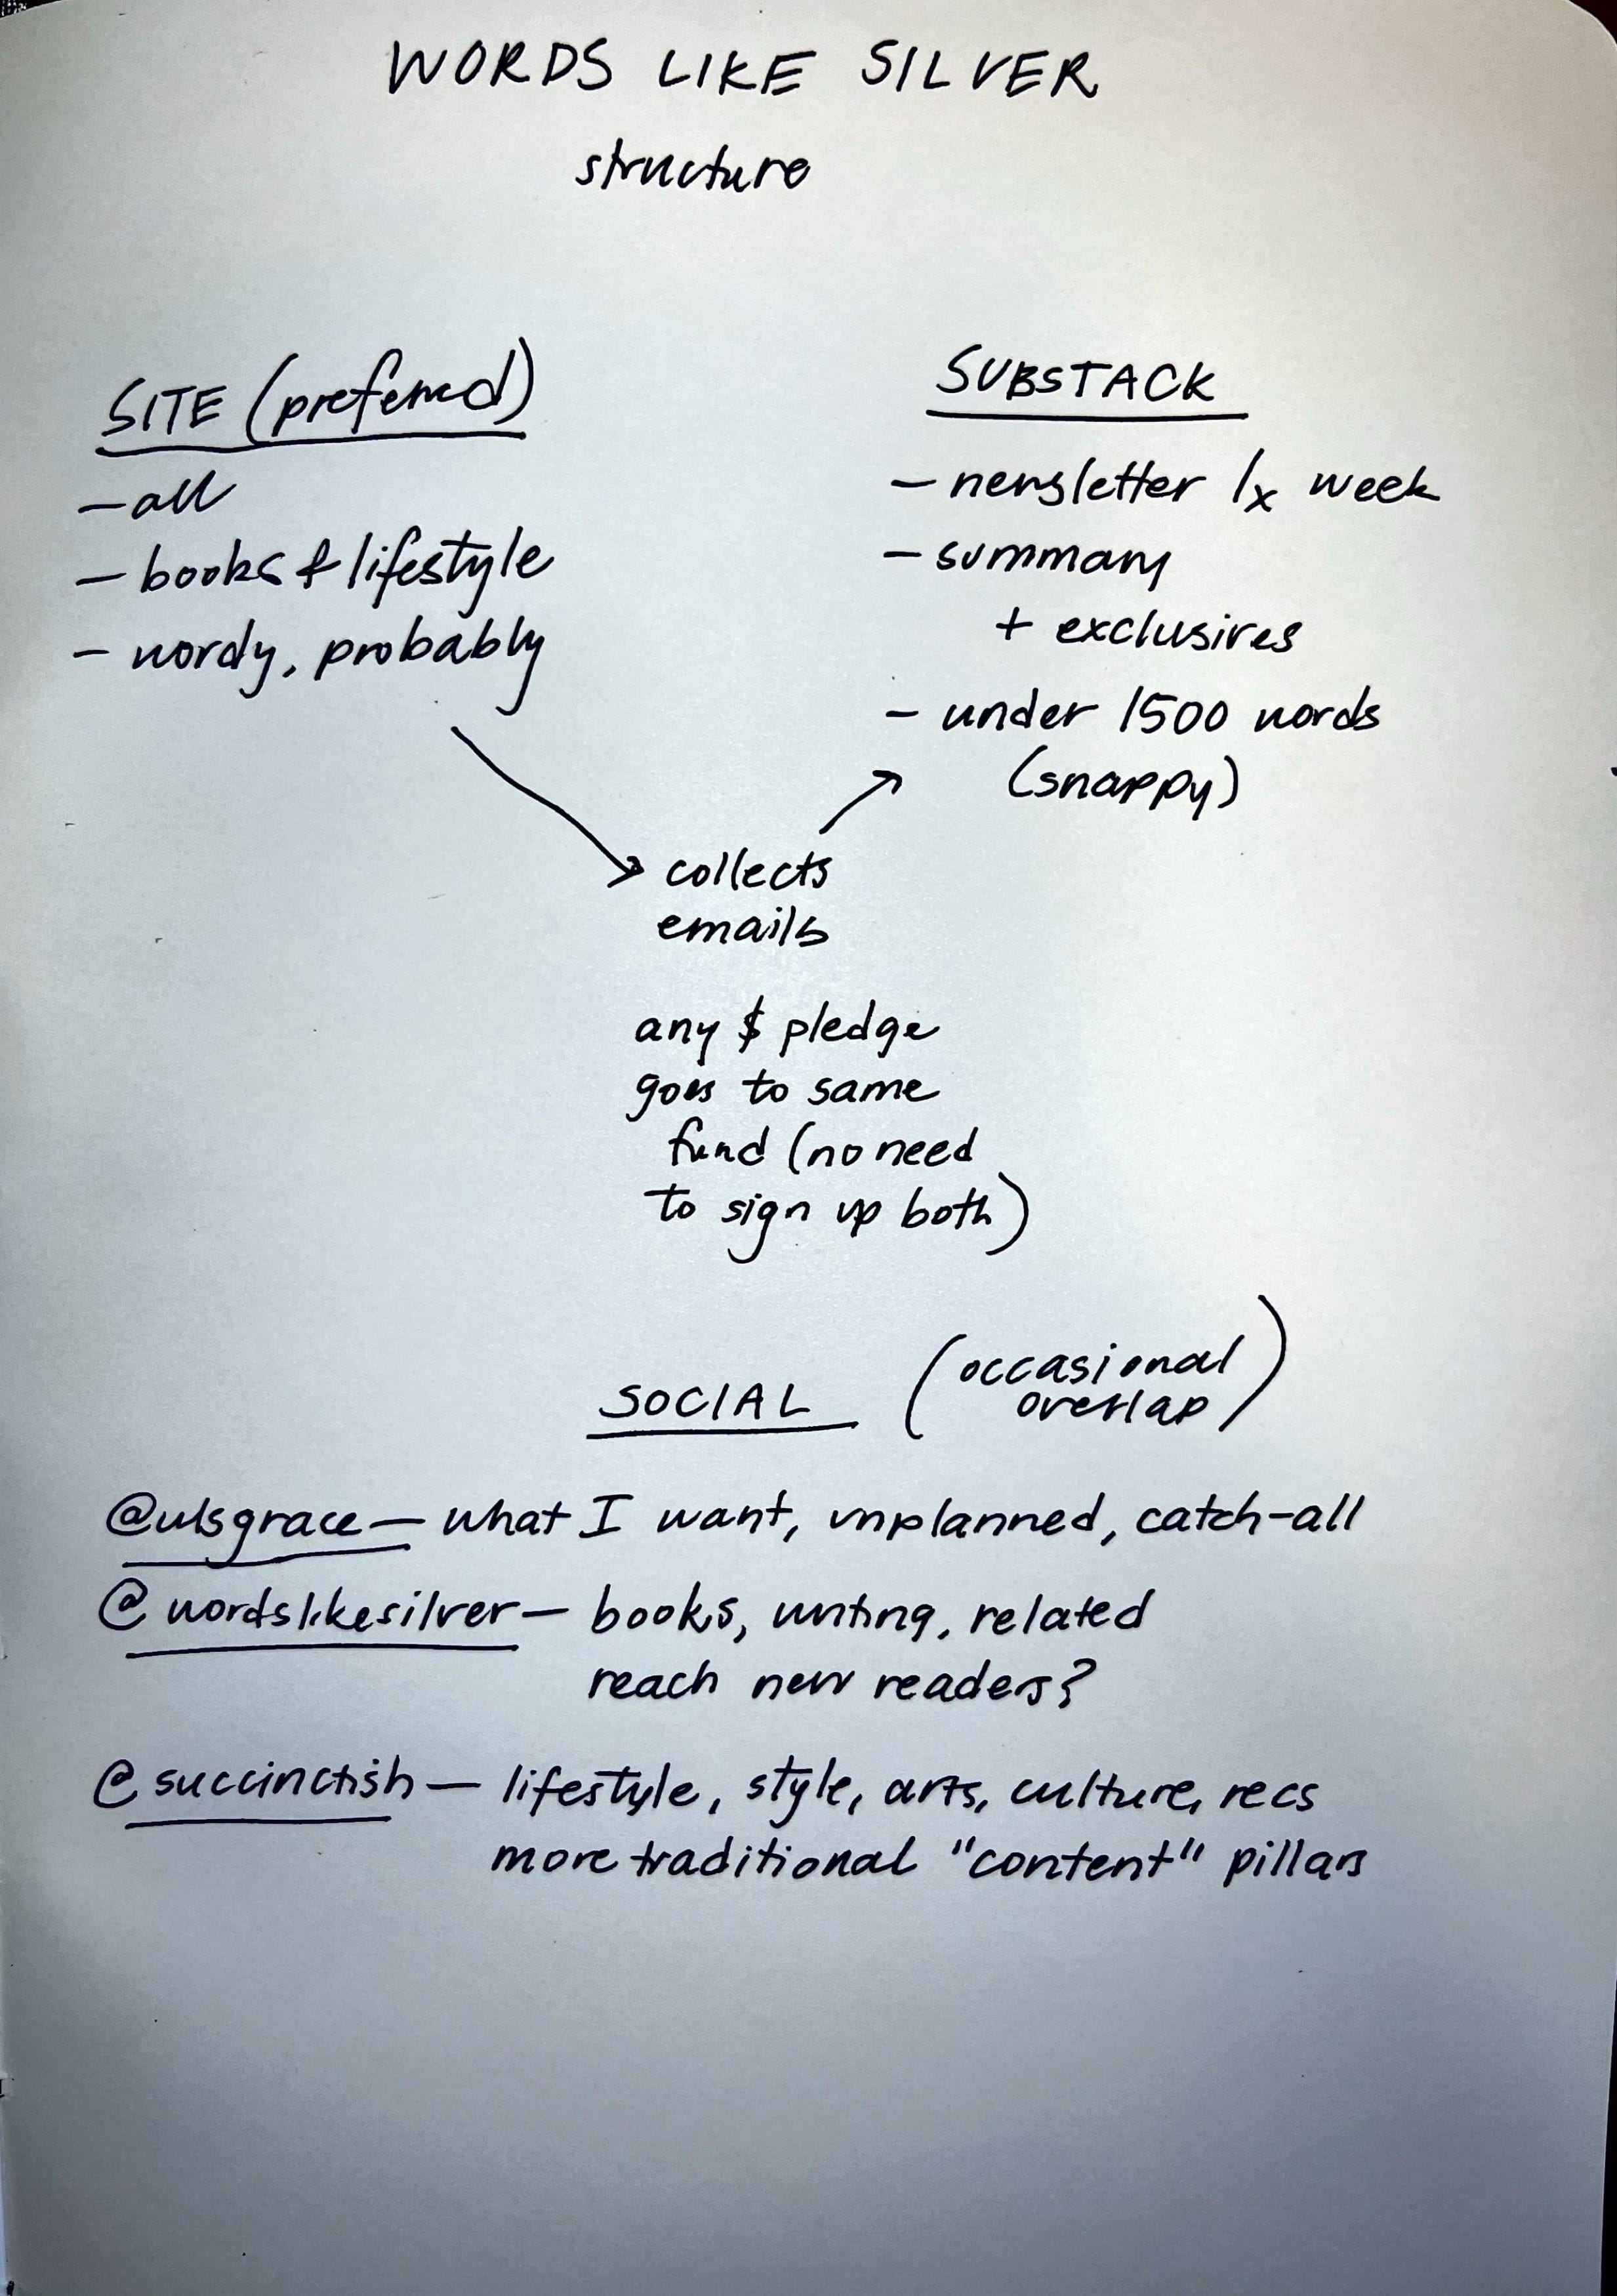 WORDS LIKE SILVER
structure
SITE (preferred)
- all
- books & lifestyle
- wordy, probably
SUBSTACK
- newsletter 1x week
- summary
+ exclusives
- under 1500 words
(snappy)
collects
emails
any $ pledge
goes to same
fund (no need
to sign up both)
SOCIAL (occasional
overlap)
@wlsgrace - what I want, unplanned, catch-all
@wordslikesilver - books, writing, related
reach new readers?
@succinctish - lifestyle, style, arts, culture, recs
more traditional "content" pillars